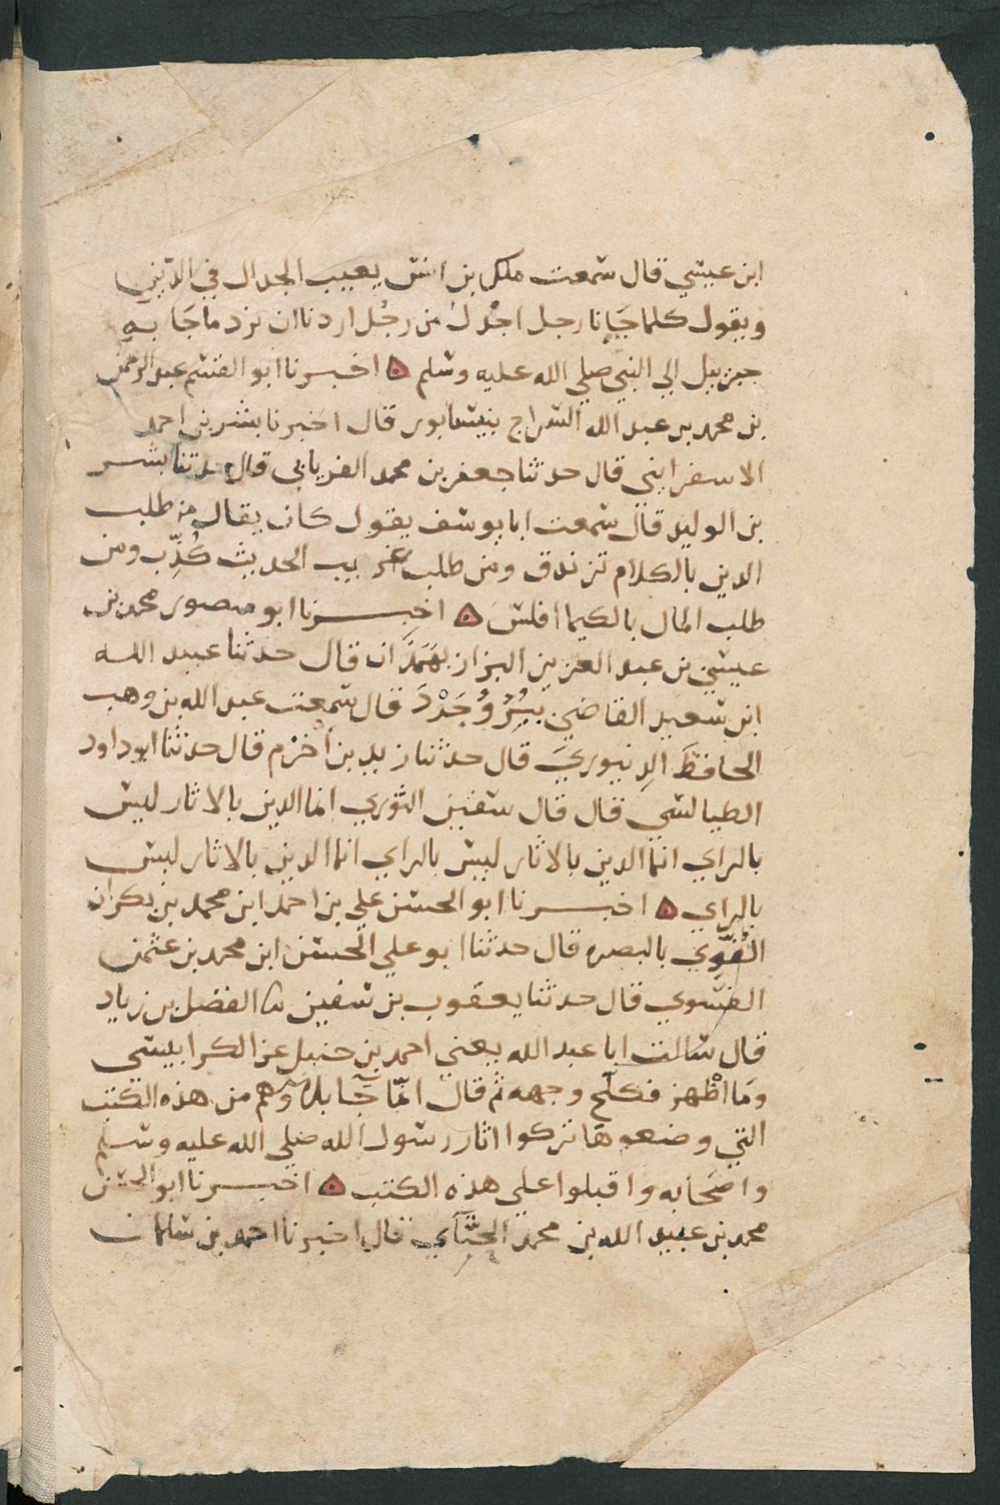 ابن عيسي قال سمعت ملك بن انس يعيب الجدال في الدين
ويقول كلما جَانا رجل اجْدل من رجُل اردنا ان نرد ما جَا به
جبريل الي النبي صلي الله عليه وسلم ۞ اخبرنا ابو القسم عبد الرحمن
بن محمد بن عبد الله السراج بنيسابور قال اخبرنا بشر بن احمد
الاسفرايني قال حدثنا جعفر بن محمد الفريابي قال حدثنا بشر
بن الوليد قال سمعت ابا يوسف يقول كان يقال من طلب
الدين بالكلام تزندق ومن طلب غريب الحديث كُذِّب ومن
طلب المال بالكيميا افلس ۞ اخبرنا ابو منصور محمد بن
عيسي بن عبد العزيز البزاز بهَمَذَان قال حدثنا عبيد الله
ابن سعيد القاضي ببُرُوجَرْدَ قال سمعت عبد الله بن وهب
الحافظَ الدِينوري قال حدثنا زيد بن اخزم قال حدثنا ابو داود
الطيالسي قال قال سفين الثوري انما الدين بالاثار ليس
بالراي انما الدين بالاثار ليس بالراي انما الدين بالاثار ليس
بالراي ۞ اخبرنا ابو الحسن علي بن احمد ابن محمد بن بكران
الفُوِّي بالبصره قال حدثنا ابو علي الحسن ابن محمد بن عثمن
الفسوي قال حدثنا يعقوب بن سفين نا الفضل بن زياد
قال سالت ابا عبد الله يعني احمد بن حنبل عن الكرابيسي
ومَا اظْهر فكلَح وجهه ثم قال انمّا جَا بلاؤهم من هذه الكتب
التي وضعوهَا تركوا اثار رسول الله صلي الله عليه وسلم
واصحَابه واقبلوا علي هذه الكتب ۞ اخبرنا ابو الحسن
محمد بن عبيد الله بن محمد الحنّآي قال اخبرنا احمد بن سلمان